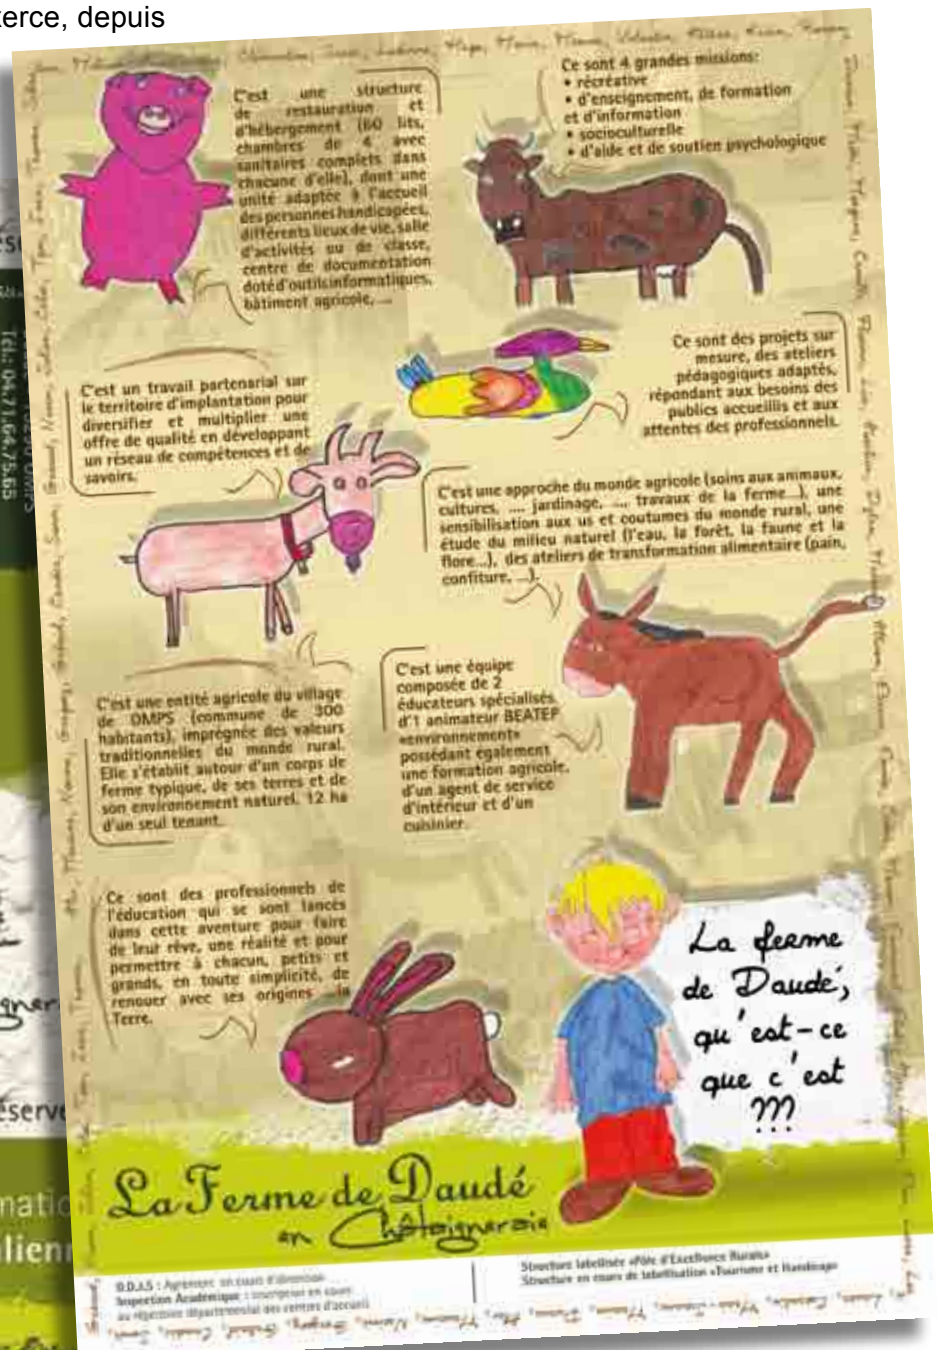 erce, depuis
C'est une structure
de restauration et
d'hébergement (60 lits,
chambres de 4 avec
sanitaires complets dans
chacune d'elle), dont une
unité adaptée à l'accueil
des personnes handicapées,
différents lieux de vie, salle
d'activités ou de classe,
centre de documentation
doté d'outils informatiques,
bâtiment agricole, ...
Ce sont 4 grandes missions:
• récréative
• d'enseignement, de formation
et d'information
• socioculturelle
• d'aide et de soutien psychologique
Ce sont des projets sur
mesure, des ateliers
pédagogiques adaptés,
répondant aux besoins des
publics accueillis et aux
attentes des professionnels.
C'est un travail partenarial sur
le territoire d'implantation pour
diversifier et multiplier une
offre de qualité en développant
un réseau de compétences et de
savoirs.
C'est une approche du monde agricole (soins aux animaux,
cultures, .... jardinage, ..., travaux de la ferme...), une
sensibilisation aux us et coutumes du monde rural, une
étude du milieu naturel (l'eau, la forêt, la faune et la
flore...), des ateliers de transformation alimentaire (pain,
confiture, ...).
C'est une entité agricole du village
de OMPS (commune de 300
habitants), imprégnée des valeurs
traditionnelles du monde rural.
Elle s'établit autour d'un corps de
ferme typique, de ses terres et de
son environnement naturel. 12 ha
d'un seul tenant.
C'est une équipe
composée de 2
éducateurs spécialisés,
d'1 animateur BEATEP
«environnement»
possédant également
une formation agricole,
d'un agent de service
d'intérieur et d'un
cuisinier.
Ce sont des professionnels de
l'éducation qui se sont lancés
dans cette aventure pour faire
de leur rêve, une réalité et pour
permettre à chacun, petits et
grands, en toute simplicité, de
renouer avec ses origines ...la
Terre.
La ferme
de Daudé,
qu'est-ce
que c'est
???
La Ferme de Daudé
en Châtaigneraie
D.D.J.S : Agrément en cours d'obtention
Inspection Académique : inscription en cours
au répertoire départemental des centres d'accueil
Structure labellisée «Pôle d'Excellence Rurale»
Structure en cours de labellisation «Tourisme et Handicap»
Tél.: 04.71.64.75.65